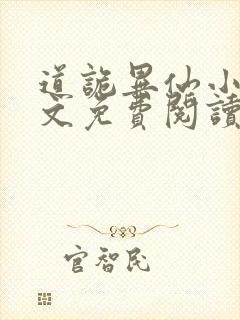 道詭異仙小
文免費閱讀
官智民